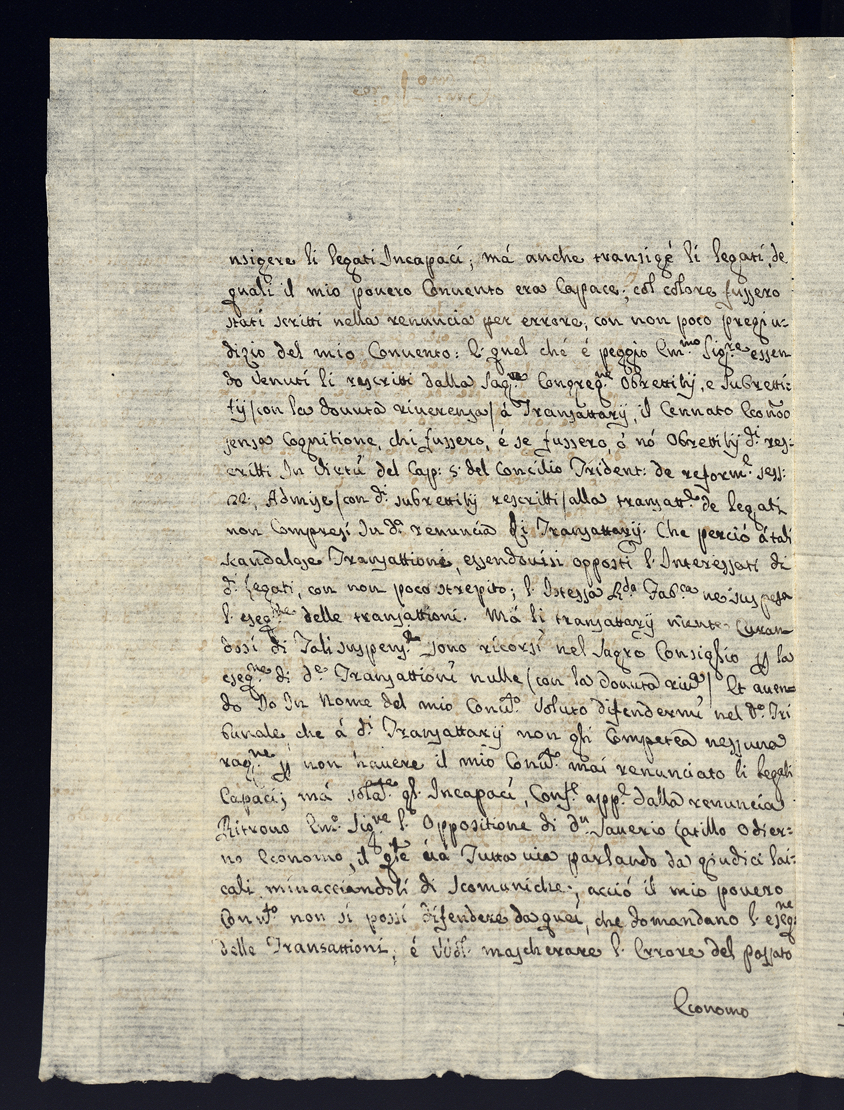 nsigere li legati Incapaci; má anche transigé li legati, de
quali il mio pouero Conuento era Capace; col colore fussero
stati scritti nella renuncia per errore, con non poco pregiu-
dizio del mio Conuento: E quel ché é peggio Em.mo Sig.re essen
do venuti li rescritti dalla Sag.ra Congreg.ne Obrettitij, e subretti-
tij /con la douuta riuerenza/ á Transattarij, il Cennato Econ.o
senza Cognitione, chi fussero, é se fussero, ó nó Obrettitij d.i res-
critti In virtú del Cap: 5. del Concilio Trident: de reform.e sess:
22., Admise /con d.i subrettitij rescritti/ alla transatt.e de legati
non Compresi In d.a renuncia di Transattarij. Che perció á tali
scandalose Transattioni, essendouisi opposti l'Interessati di
d.i legati, con non poco strepito; l'Istessa R.da Fab.ca ne suspesa
l'eseq.ne delle transattioni. Má li transattarij niente Curan
dosi di Tali suspens.ne sono ricorsi nel Sagro Consiglio p la
eseq.ne di d.e Transattioni nulle /con la douuta riu.a/ Et auen-
do Io In Nome del mio Conu.to voluto difendermi nel d.o Tri
bunale che á d.i Transattarij non gli Competea nessuna
rag.ne p non hauere il mio Conu.to mai renunciato li legati
Capaci; má sola.te gl'Incapaci, Conf.e app.e dalla renuncia
Ritrouo Em.o Sig.re l'Oppositione di d.n Sauerio Catillo Odier-
no Economo, il q.le uá Tutta uia parlando da giudici lai-
cali minacciandoli di Scomuniche, acció il mio pouero
Conu.to non si possi difendere da quei, che domandano l'eseq.ne
delle Transattioni; é vuol mascherare l'Errore del passato
Economo